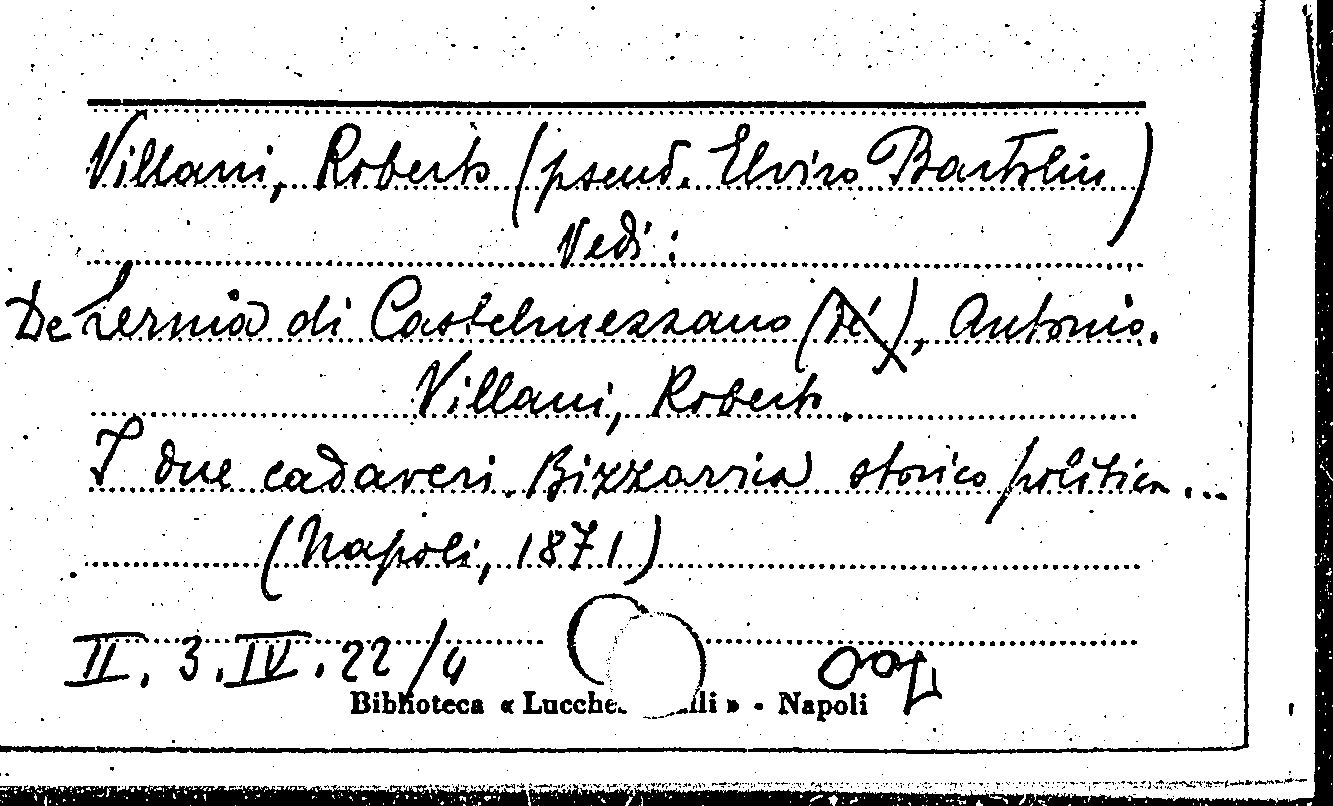 Villani, Roberto (pseud. Elviro Bartolin)
Vedi:
De Lernia di Castelmezzano (de), Antonio.
Villani, Roberto.
I due cadaveri. Bizzarria storico politica...
(Napoli, 1871)
II. 3. IV. 22/4
Biblioteca « Lucche lli » - Napoli